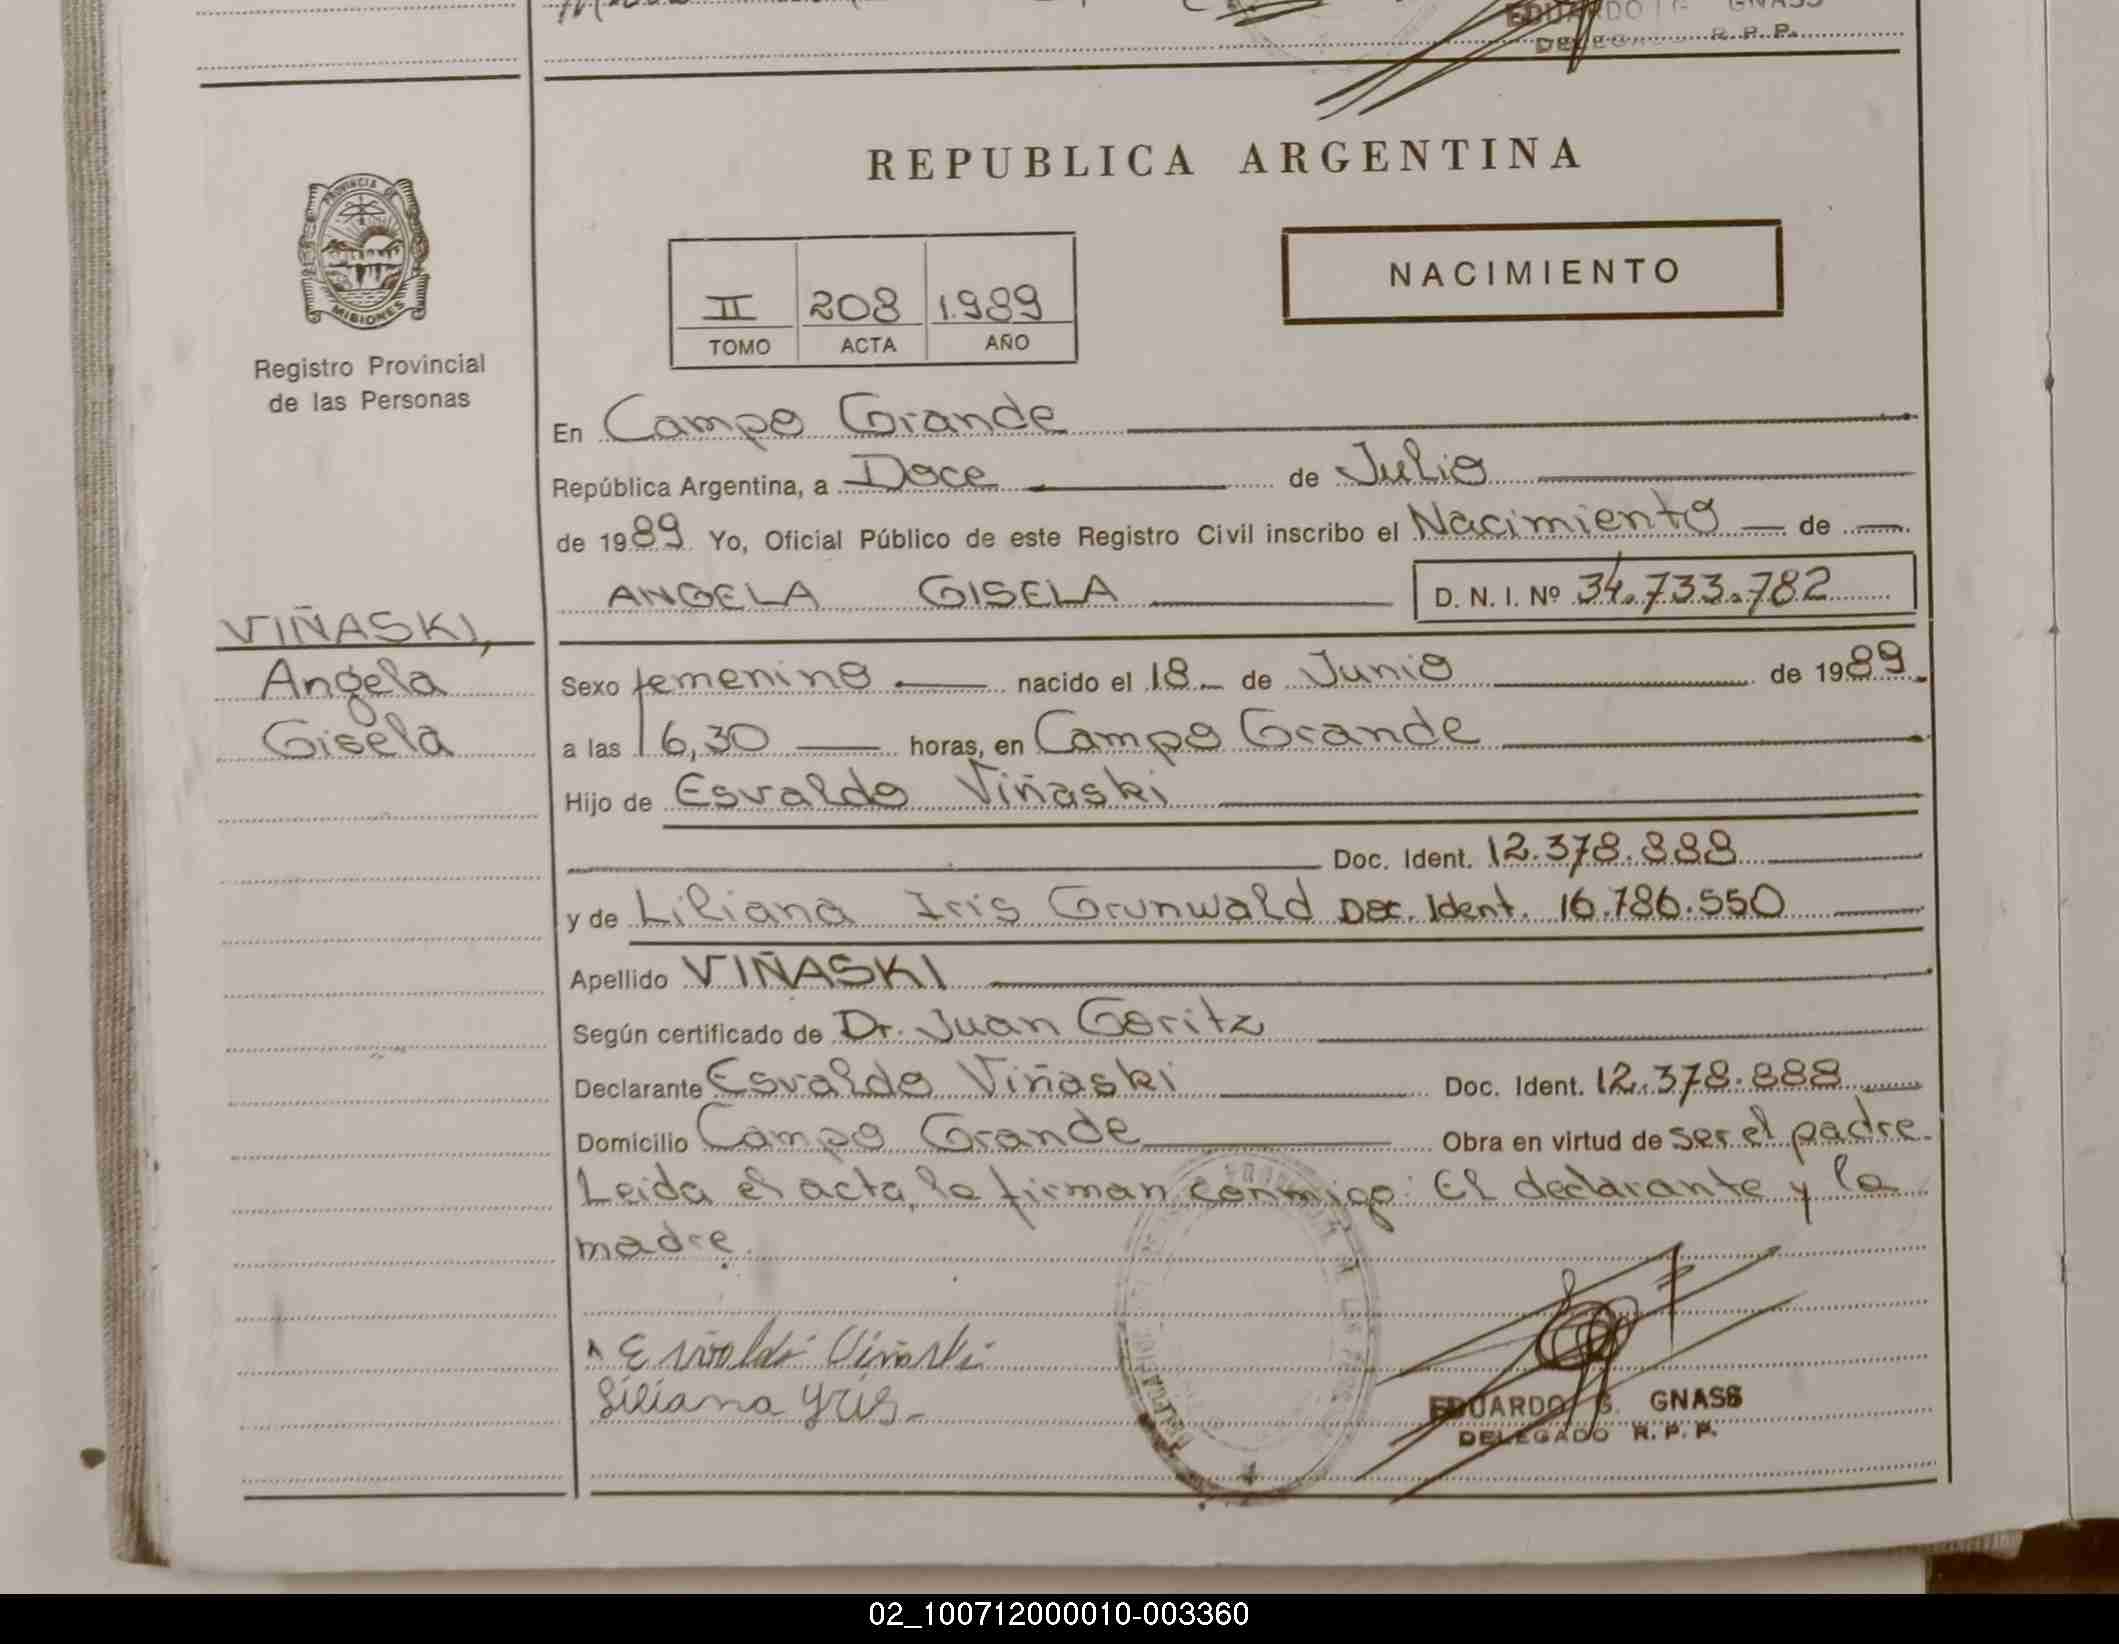 EDUARDO G GNASS
DELEGADO R. P. P.
PROVINCIA DE
MISIONES
Registro Provincial
de las Personas
REPUBLICA ARGENTINA
NACIMIENTO
II 208 1.989
TOMO ACTA AÑO
En Campo Grande
República Argentina, a Doce de Julio
de 1989 Yo, Oficial Público de este Registro Civil inscribo el Nacimiento de
ANGELA GISELA D. N. I. Nº 34.733.782
VIÑASKI,
Angela
Gisela
Sexo femenino nacido el 18 de Junio de 1989
a las 16,30 horas, en Campo Grande
Hijo de Esvaldo Viñaski
Doc. Ident. 12.378.888
y de Liliana Iris Grunwald Doc. Ident. 16.786.550
Apellido VIÑASKI
Según certificado de Dr. Juan Goritz
Declarante Esvaldo Viñaski Doc. Ident. 12.378.888
Domicilio Campo Grande Obra en virtud de ser el padre.
Leida el acta, la firman conmigo: El declarante y la
madre.
Esvaldo Viñaski
Liliana Yris
EDUARDO G. GNASS
DELEGADO R. P. P.
02_100712000010-003360